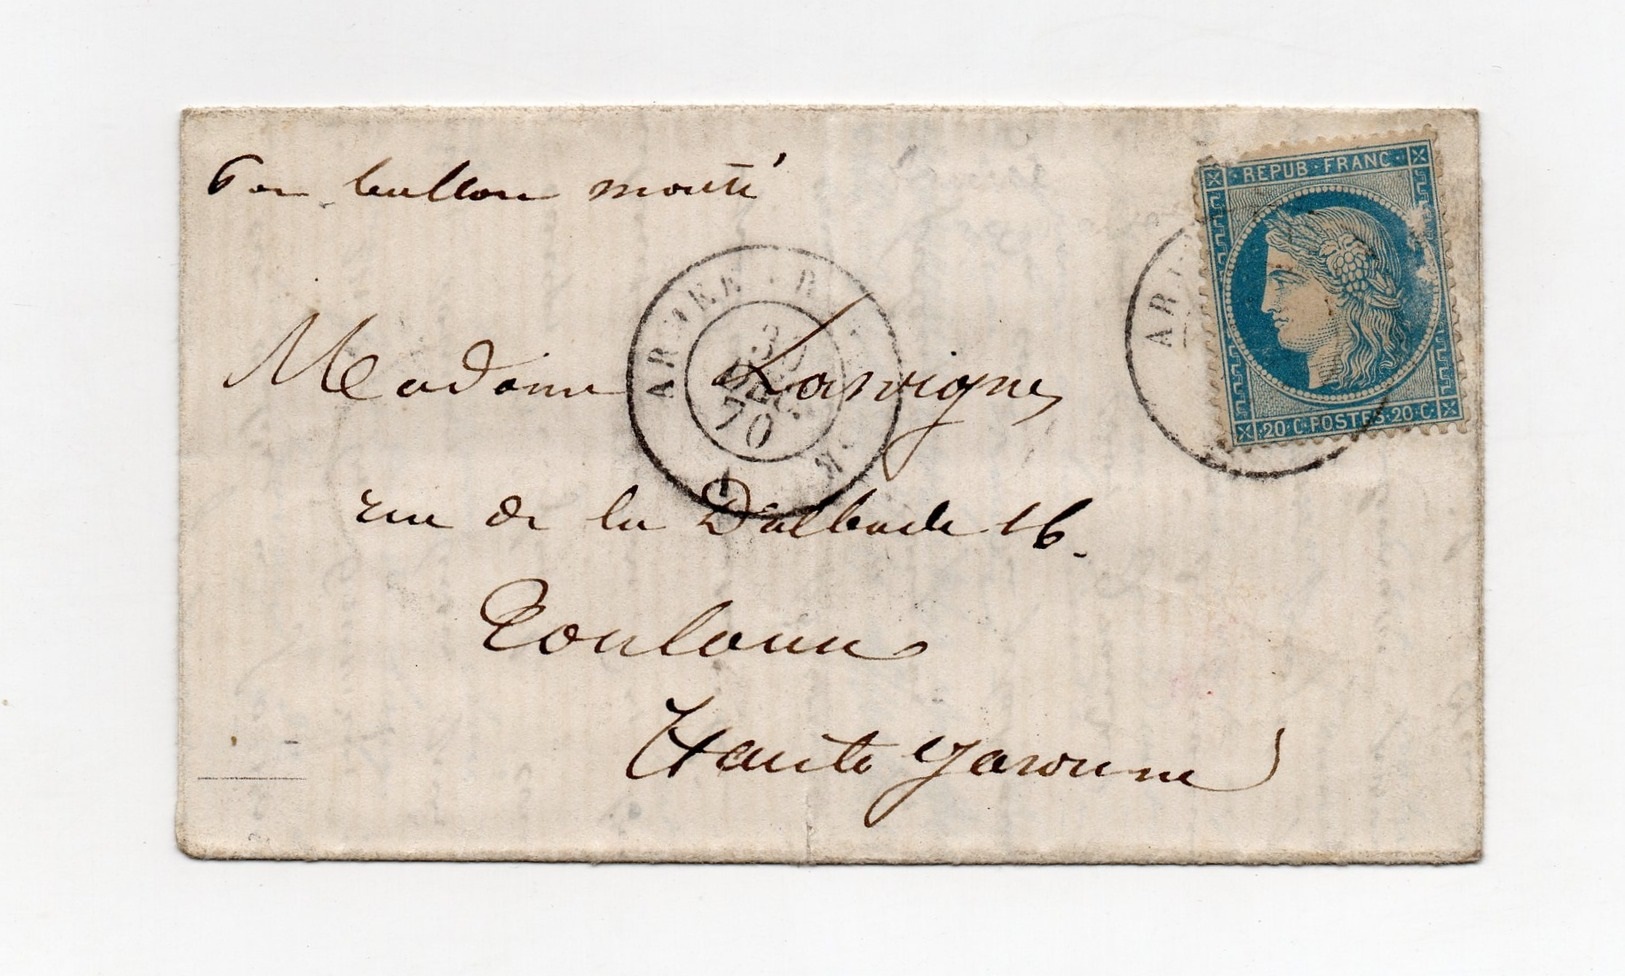 Par ballon monté
REPUB·FRANC·
20·C·POSTES·20·C·
AR
ARMÉE
30
DEC.
70
Madame Lavigne
rue de la Dalbade 16.
Toulouse
Haute Garonne